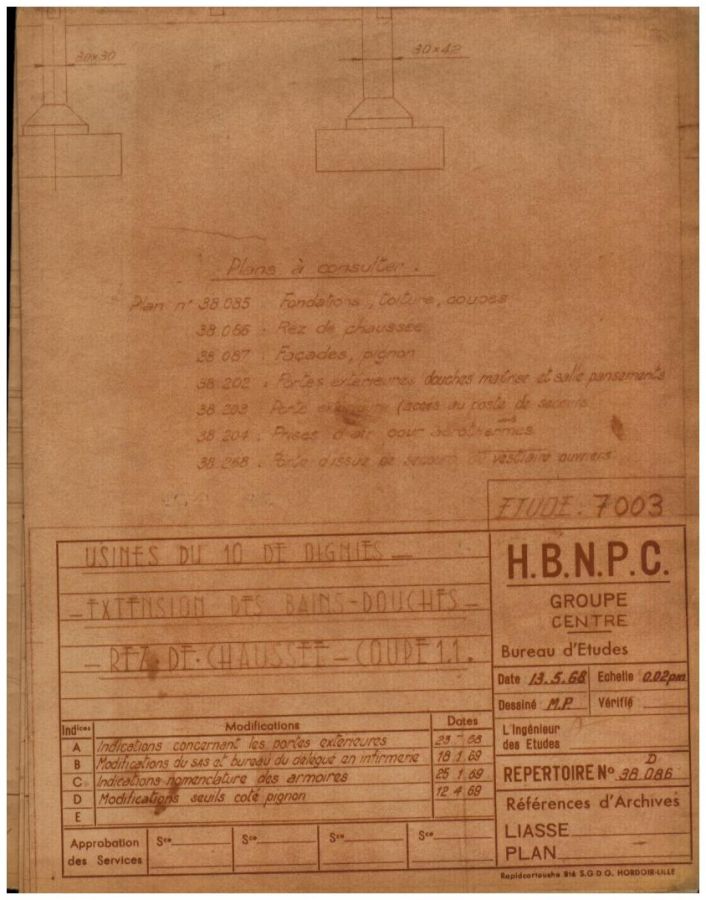 30x30
30x42
Plans à consulter.
Plan n° 38.085 : Fondations, toiture, coupes
38.086 : Rez de chaussée
38 087 : Façades, pignon
38.202 : Portes extérieures douches maitrise et salle pansements
38.203 Porte extérieure (accès au poste de secours
38.204 : Prises d'air pour aérothermes
38.268 : Porte d'issue de secours du vestiaire ouvriers.
ETUDE : 7003
USINES DU 10 DE OIGNIES _
_ EXTENSION DES BAINS-DOUCHES _
_ REZ-DE-CHAUSSÉE _ COUPE 1.1.
H.B.N.P.C.
GROUPE
CENTRE
Bureau d'Etudes
Date 13.5.68 Echelle 0.02pm
Dessiné M.P Vérifié
L'Ingénieur
des Etudes
REPERTOIRE N° 38.086 D
Références d'Archives
LIASSE
PLAN
Indices Modifications Dates
A Indications concernant les portes extérieures 68
B Modifications du sas et bureau du délégué en infirmerie 18 1 69
C Indications nomenclature des armoires 25 1 69
D Modifications seuils coté pignon 12 4 69
E
Approbation
des Services
Sce Sce Sce Sce
Rapidcartouche Bté S.G.D.G. HORDOIR-LILLE